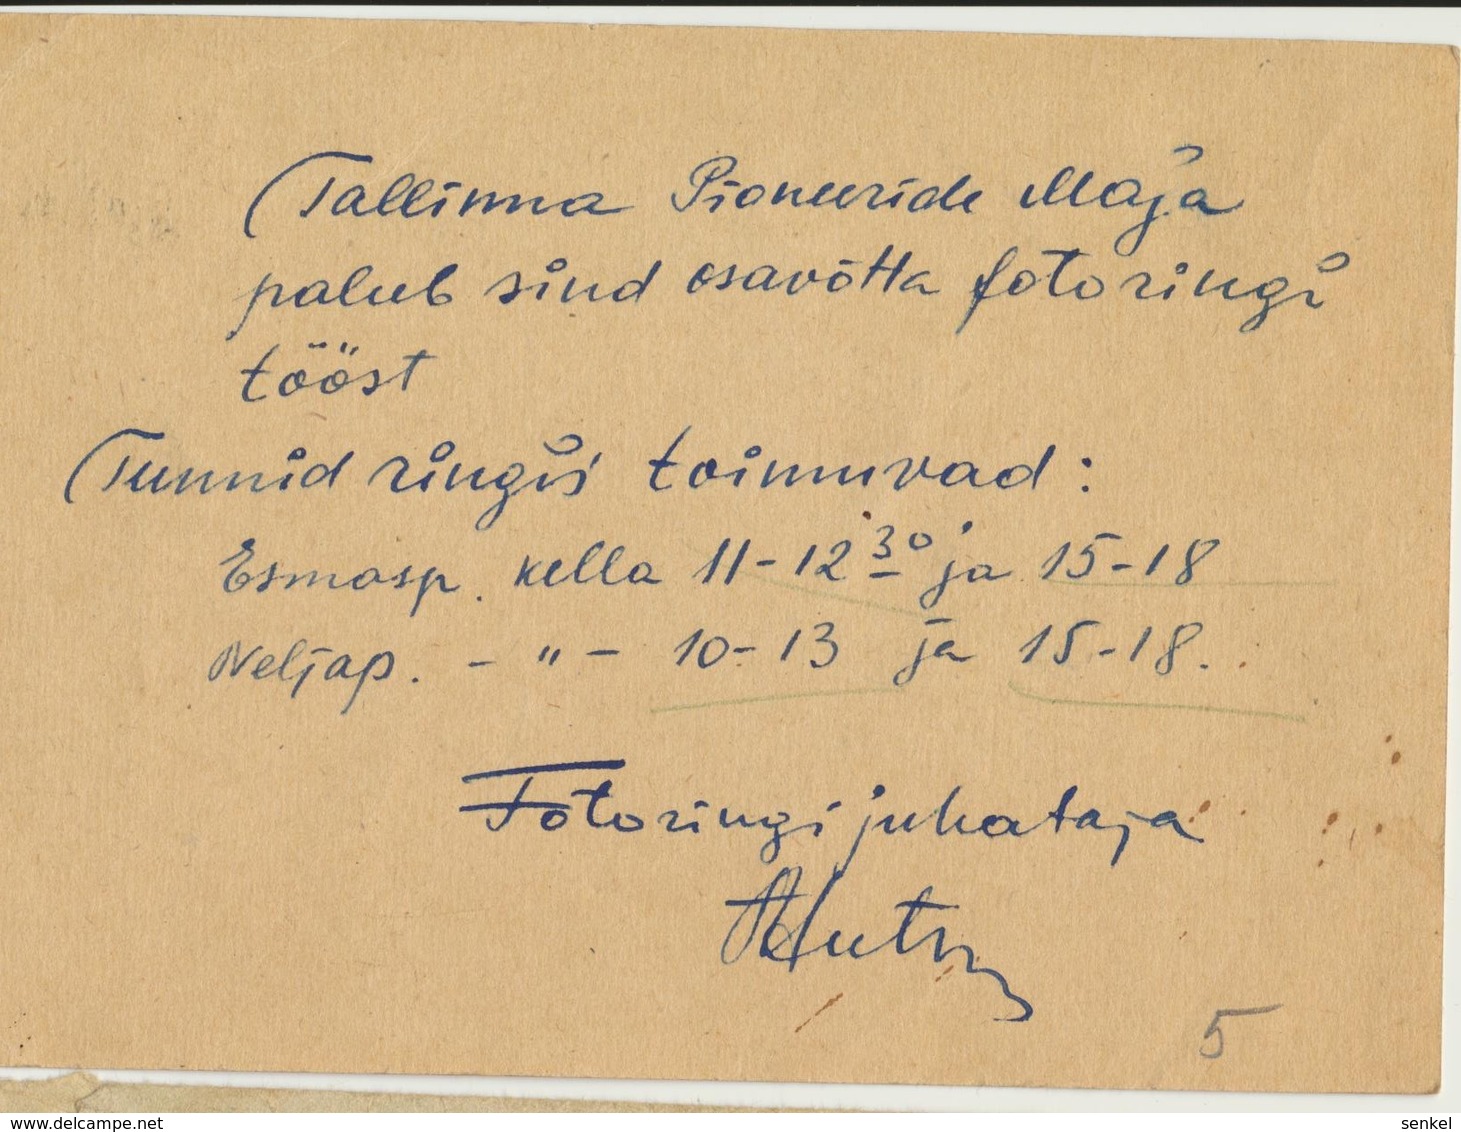 Tallinna Pioneeride Maja
palub sind osavõtta fotoringi
tööst
Tunnid ringis toimuvad:
Esmasp. kella 11-12 30 ja 15-18
Neljap. - " - 10-13 ja 15-18.
Fotoringi juhataja
5
www.delcampe.net
senkel